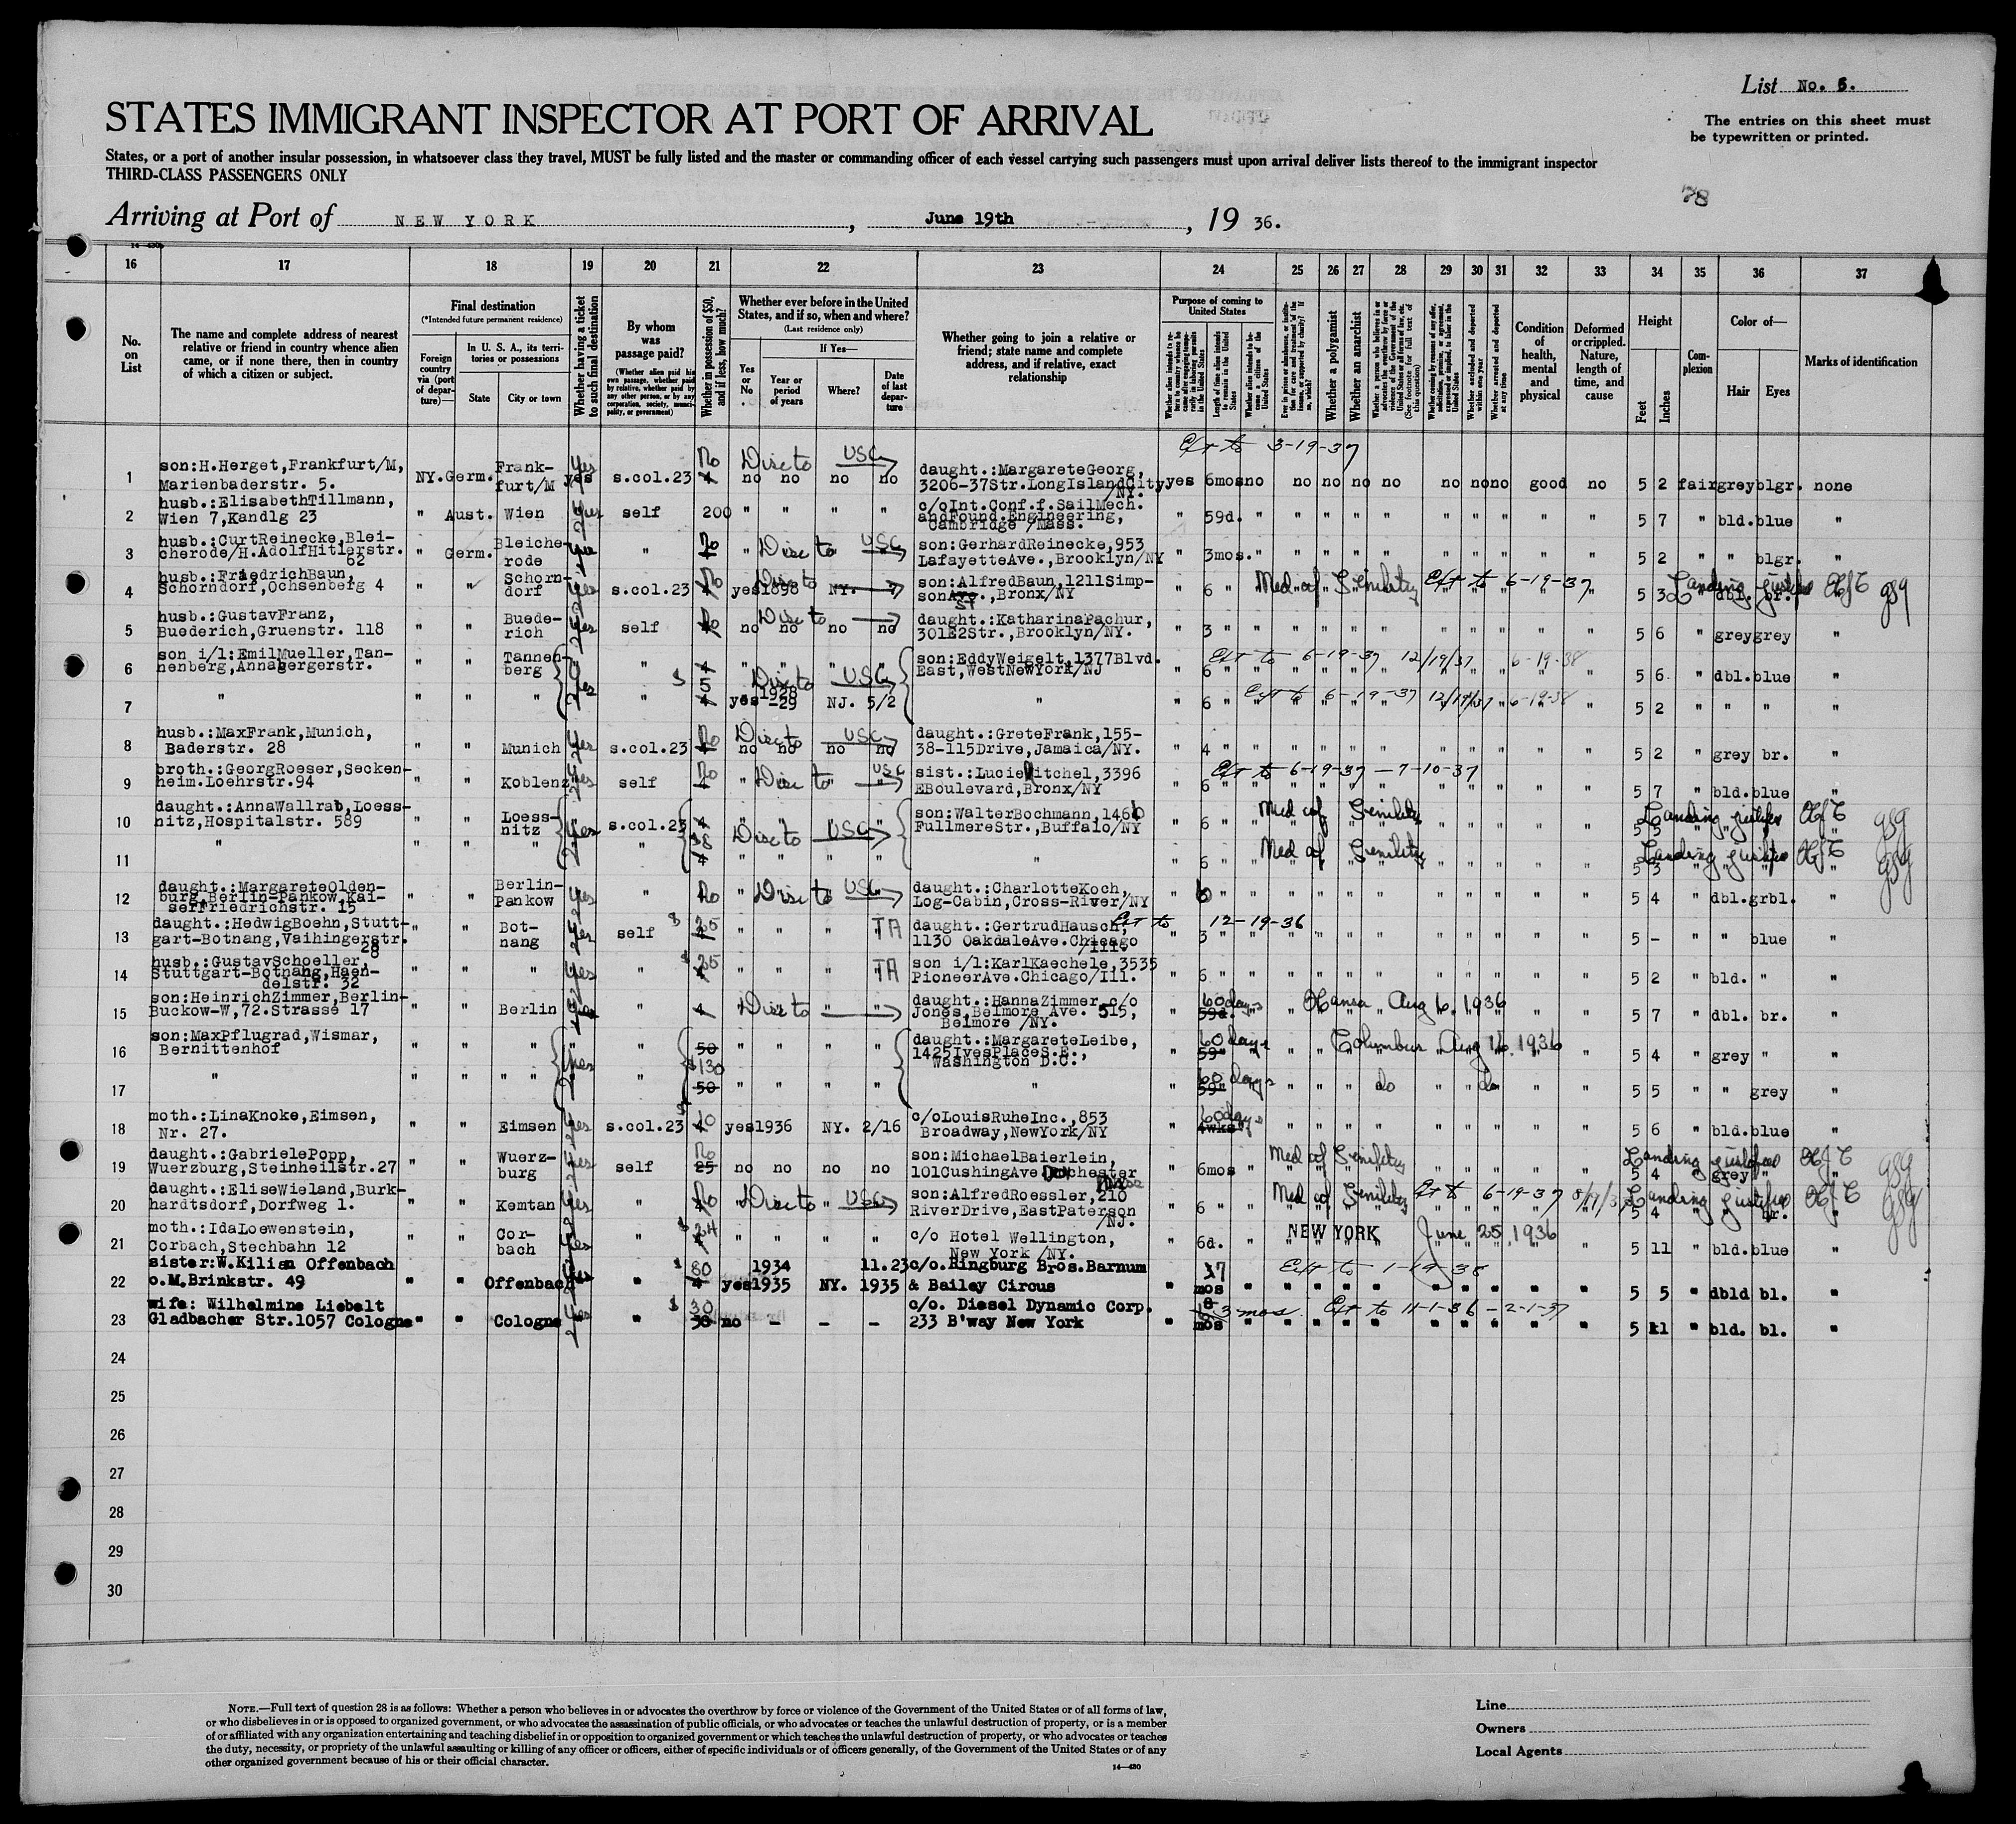 List No. 5.
STATES IMMIGRANT INSPECTOR AT PORT OF ARRIVAL
The entries on this sheet must
be typewritten or printed.
States, or a port of another insular possession, in whatsoever class they travel, MUST be fully listed and the master or commanding officer of each vessel carrying such passengers must upon arrival deliver lists thereof to the immigrant inspector
THIRD-CLASS PASSENGERS ONLY
78
Arriving at Port of NEW YORK, June 19th, 19 36.
16 17 18 19 20 21 22 23 24 25 26 27 28 29 30 31 32 33 34 35 36 37
No. on List
The name and complete address of nearest relative or friend in country whence alien came, or if none there, then in country of which a citizen or subject.
Final destination
(*Intended future permanent residence)
Foreign country via (port of departure)—
In U. S. A., its territories or possessions
State
City or town
Whether having a ticket to such final destination
By whom was passage paid?
(Whether alien paid his own passage, whether paid by relative, whether paid by any other person, or by any corporation, society, municipality, or government)
Whether in possession of $50, and if less, how much?
Whether ever before in the United States, and if so, when and where?
(Last residence only)
Yes or No
If Yes—
Year or period of years
Where?
Date of last departure
Whether going to join a relative or friend; state name and complete address, and if relative, exact relationship
Purpose of coming to United States
Length of time alien intended to remain in the United States
Whether alien intends to become a citizen of the United States
Whether a polygamist
Whether an anarchist
Whether excluded and deported within one year
Whether arrested and deported at any time
Condition of health, mental and physical
Deformed or crippled. Nature, length of time, and cause
Height
Feet
Inches
Complexion
Color of—
Hair
Eyes
Marks of identification
Ext to 3-19-37
1 son:H.Herget,Frankfurt/M, Marienbaderstr. 5. NY. Germ. Frankfurt/M yes s.col.23 No no no no no daught.:MargareteGeorg, 3206-37Str.LongIslandCity /NY. yes 6mos no no no no no no no no good no 5 2 fair grey blgr. none
Disc to USC
2 husb.:ElisabethTillmann, Wien 7,Kandlg 23 " Aust. Wien yes self 200 " " " " c/oInt.Conf.f.SailMech. andFound.Engineering, Cambridge /Mass. " 59d. " 5 7 " bld. blue "
3 husb.:CurtReinecke,Bleicherode/H.AdolfHitlerstr. 62 " Germ. Bleicherode yes " No " Disc to USC son:GerhardReinecke,953 LafayetteAve.,Brooklyn/NY " 3mos. " 5 2 " " blgr. "
4 husb.:FriedrichBaun, Schorndorf,Ochsenberg 4 " " Schorndorf yes s.col.23 No yes 1898 NY. Disc to son:AlfredBaun,1211Simpson Ave. St.,Bronx/NY " 6 " Med cf Senility Ext to 6-19-37 5 3 " dbl. br. Landing justified
5 husb.:GustavFranz, Buederich,Gruenstr. 118 " " Buederich yes self No no no no no Disc to daught.:KatharinaPachur, 301E2Str.,Brooklyn/NY. " 3 " 5 6 " grey grey "
6 son i/l:EmilMueller,Tannenberg,Annabergerstr. " " Tannenberg yes " $ 5 " " " " Disc to USC son:EddyWeigelt,1377Blvd. East,WestNewYork/NJ " 6 " Ext to 6-19-37 12/19/37 6-19-38 5 6 " dbl. blue "
7 " " " " " yes 1928-29 NJ. 5/2 " " 6 " Ext to 6-19-37 12/19/37 6-19-38 5 2 " " " "
8 husb.:MaxFrank,Munich, Baderstr. 28 " " Munich yes s.col.23 No no no no no Disc to USC daught.:GreteFrank,155-38-115Drive,Jamaica/NY. " 4 " 5 2 " grey br. "
9 broth.:GeorgRoeser,Seckenheim.Loehrstr.94 " " Koblenz yes self No " Disc to USC sist.:Lucie 3396 EBoulevard,Bronx/NY " 6 " Ext to 6-19-37 — 7-10-37 5 7 " bld. blue "
10 daught.:AnnaWallrab,Loessnitz,Hospitalstr. 589 " " Loessnitz yes s.col.23 " " " " Disc to USC son:WalterBochmann,1466 FullmereStr.,Buffalo/NY " 6 " Med cf Senility 5 5 Landing justified
11 " " " " $8 " " " " " " 6 " Med cf Senility 5 3 Landing justified
12 daught.:MargareteOldenburg,Berlin-Pankow,KaiserFriedrichstr. 15 " " Berlin-Pankow yes " No " Disc to USC daught.:CharlotteKoch, Log-Cabin,Cross-River/NY 6 " 5 4 " dbl. grbl. "
13 daught.:HedwigBoehn,Stuttgart-Botnang,Vaihingerstr. 28 " " Botnang yes self $ 25 " " " " TA daught.:GertrudHausch, 1130 OakdaleAve.Chicago /Ill. " 3 " Ext to 12-19-36 5 - " " blue "
14 husb.:GustavSchoeller, Stuttgart-Botnang,Haendelstr. 32 " " " yes " $ 25 " " " " TA son i/l:KarlKaechele,3535 PioneerAve.Chicago/Ill. " 6 " 5 2 " bld. " "
15 son:HeinrichZimmer,Berlin-Buckow-W,72.Strasse 17 " " Berlin yes " " Disc to daught.:HannaZimmer c/o Jones,Belmore Ave. 515, Belmore /NY. " 60 days 59d. " Hansa Aug 6, 1936 5 7 " dbl. br. "
16 son:MaxPflugrad,Wismar, Bernittenhof " " " yes " 50 $130 " " " " daught.:MargareteLeibe, 1425IvesPlaceS.E., Washington D.C. " 60 days 59 " Columbus Aug 16, 1936 5 4 " grey " "
17 " " " " " " 50 " " " " " 60 days 59 " do do 5 5 " " grey "
18 moth.:LinaKnoke,Eimsen, Nr. 27. " " Eimsen yes s.col.23 $ 10 yes 1936 NY. 2/16 c/oLouisRuheInc.,853 Broadway,NewYork/NY " 60 days 4wks " 5 6 " bld. blue "
19 daught.:GabrielePopp, Wuerzburg,Steinheilstr.27 " " Wuerzburg yes self No 25 no no no no son:MichaelBaierlein, 101CushingAve.Dorchester Mass " 6mos Med cf Senility 5 4 " grey " Landing justified
20 daught.:EliseWieland,Burkhardtsdorf,Dorfweg 1. " " Kemtan yes " No " Disc to USC son:AlfredRoessler,210 RiverDrive,EastPaterson /NJ. " 6 " Med cf Senility Ext to 6-19-37 5 4 " " br. Landing justified
21 moth.:IdaLoewenstein, Corbach,Stechbahn 12 " " Corbach yes " $ 24 " " " " c/o Hotel Wellington, New York /NY. " 6d. " NEW YORK June 25, 1936 5 11 " bld. blue "
22 sister:W.Kilian Offenbach o.M.Brinkstr. 49 " " Offenbach yes " $ 80 yes 1934 1935 NY. 11.23 1935 c/o.Ringburg Bros.Barnum & Bailey Circus " 17 mos " Ext to 1-19-38 5 5 " dbld bl. "
23 wife: Wilhelmine Liebelt Gladbacher Str.1057 Cologne " " Cologne yes " $ 30 50 no - - - c/o. Diesel Dynamic Corp. 233 B'way New York " 8 mos 3 mos. Ext to 11-1-36 - 2-1-37 5 11 " bld. bl. "
24
25
26
27
28
29
30
NOTE.—Full text of question 28 is as follows: Whether a person who believes in or advocates the overthrow by force or violence of the Government of the United States or of all forms of law,
or who disbelieves in or is opposed to organized government, or who advocates the assassination of public officials, or who advocates or teaches the unlawful destruction of property, or is a member
of or affiliated with any organization entertaining and teaching disbelief in or opposition to organized government or which teaches the unlawful destruction of property, or who advocates or teaches
the duty, necessity, or propriety of the unlawful assaulting or killing of any officer or officers, either of specific individuals or of officers generally, of the Government of the United States or of any
other organized government because of his or their official character.
14—430
Line
Owners
Local Agents